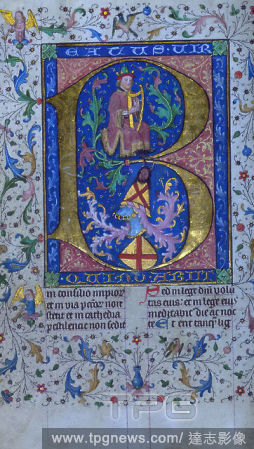 BEATUS VIR
B
QUI NON ABIIT
in consilio impior
et in via pctor non
stetit et in cathedra
pestilencie non sedit
Sed in lege dni volu
tas eius: et in lege eius
meditabit die ac noc
te Et erit tanqz lig
TPG
www.tpgnews.com/達志影像